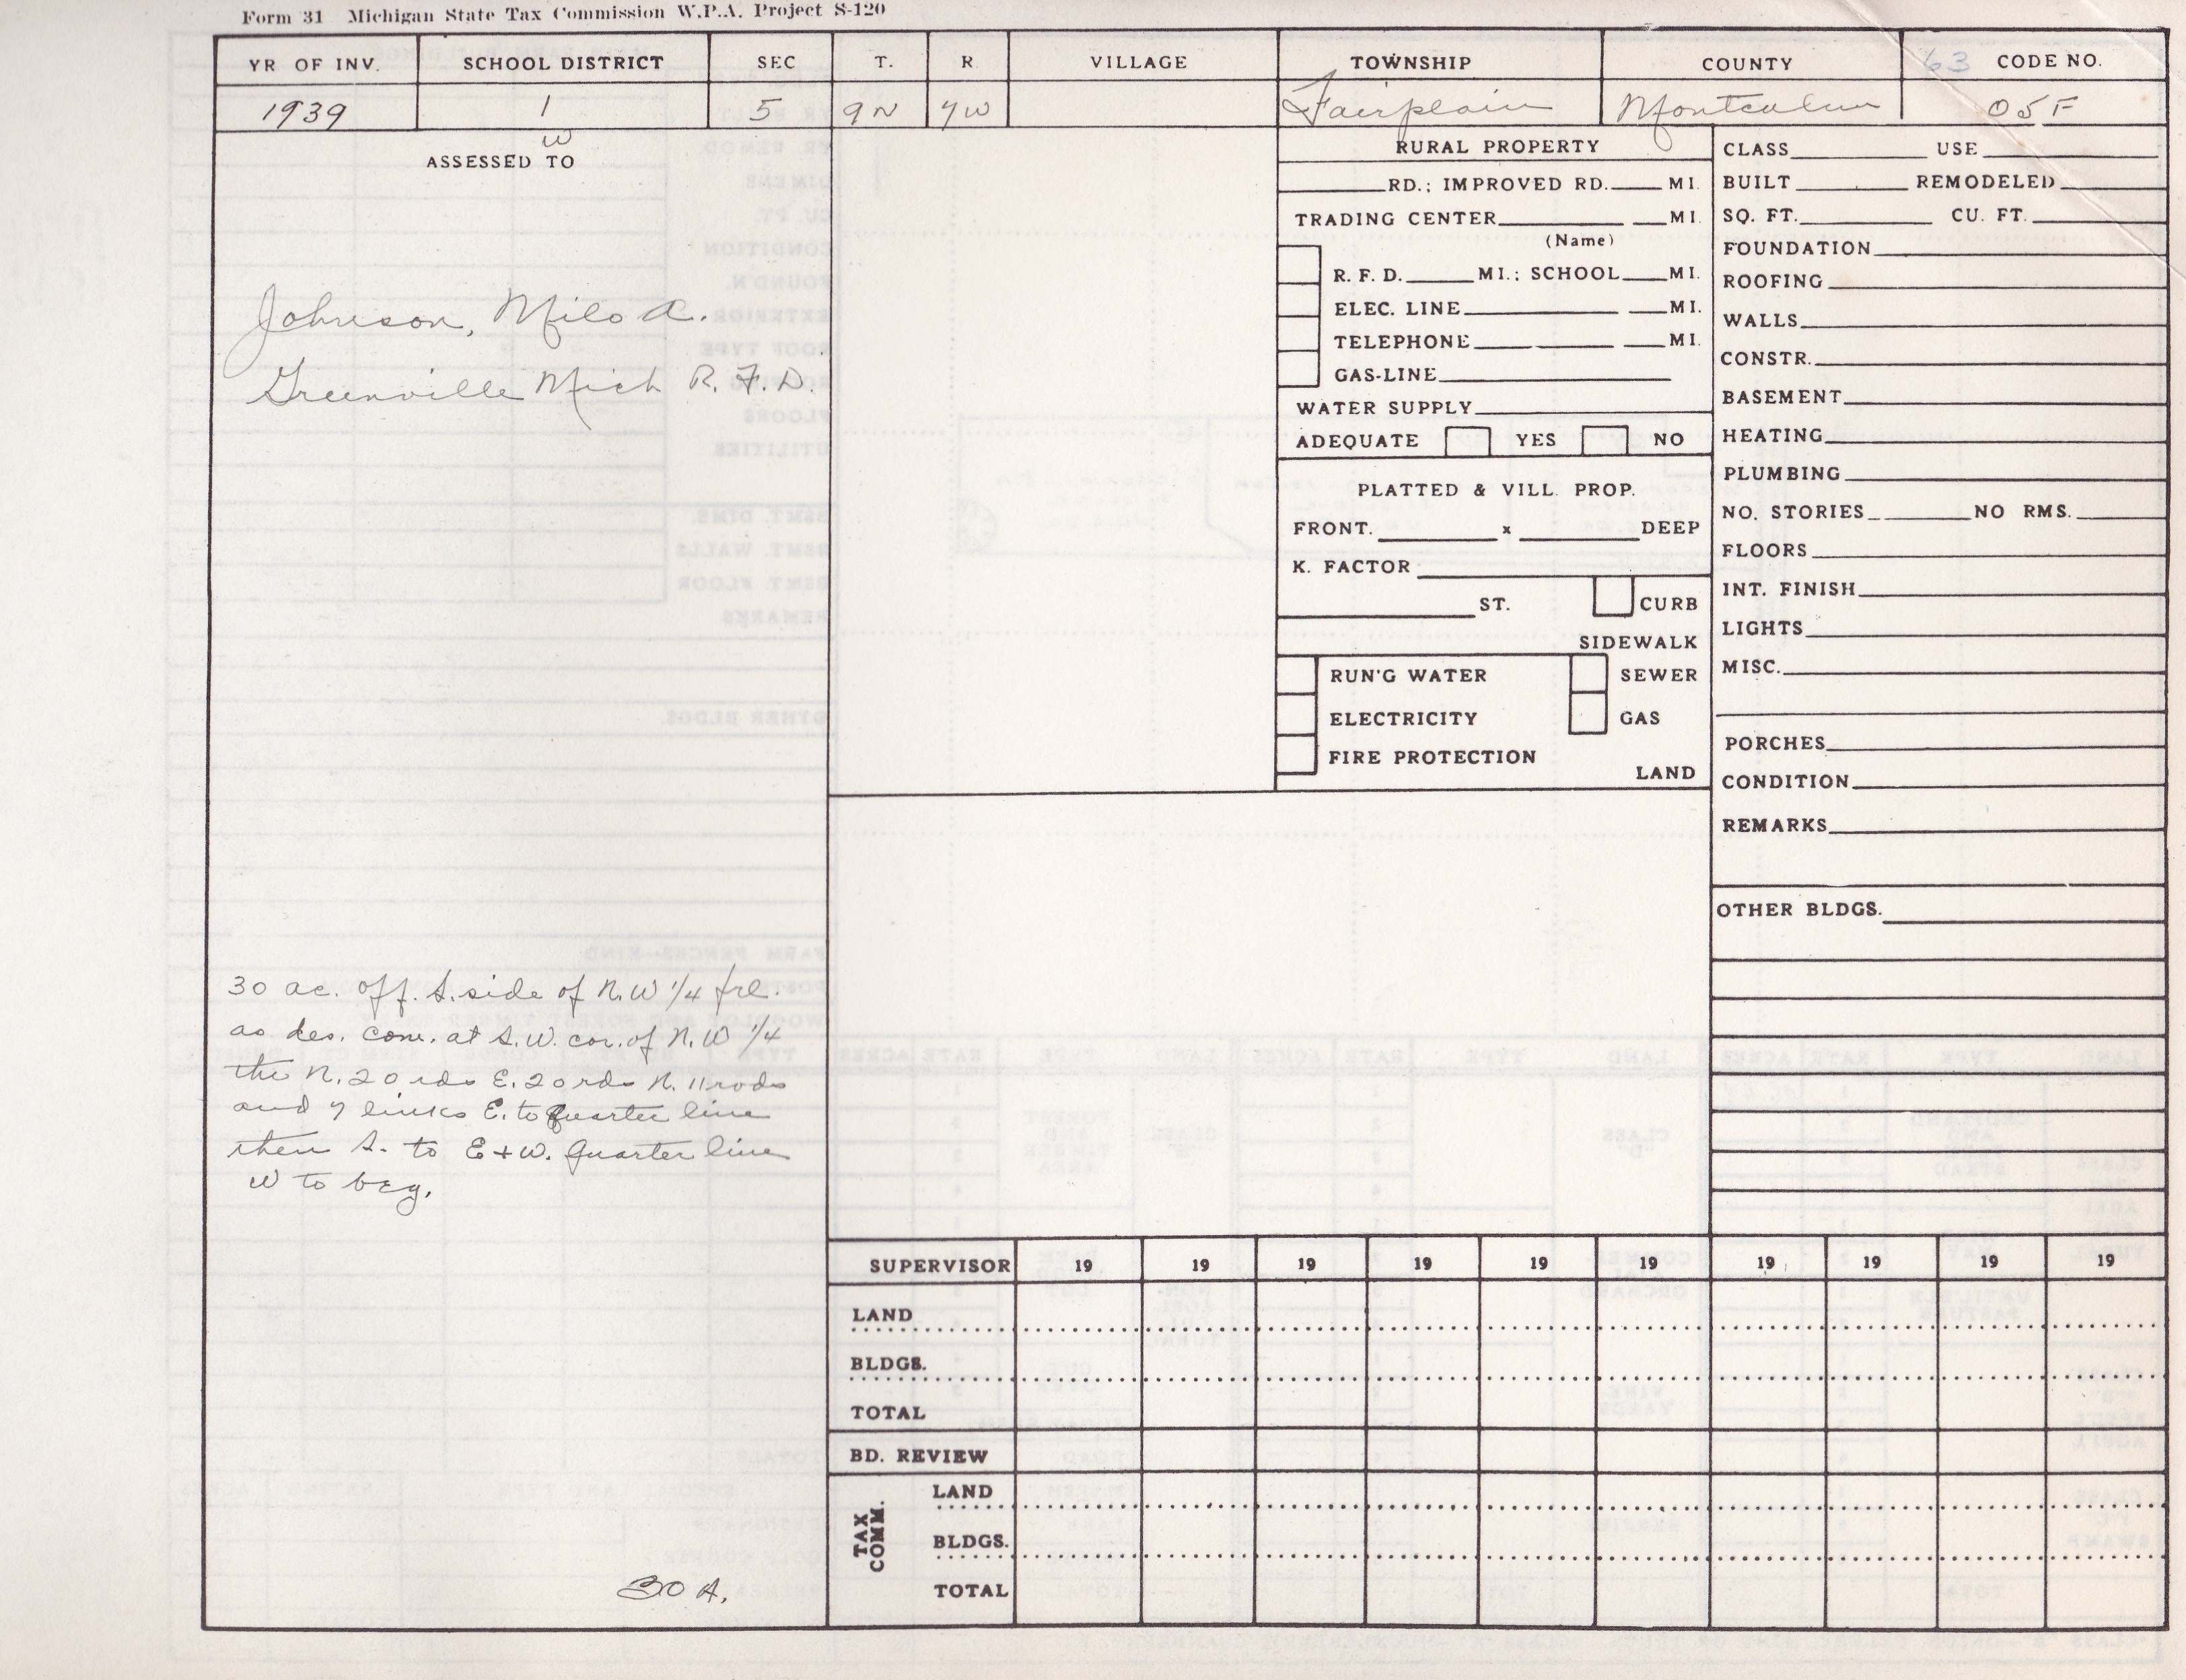 Form 31 Michigan State Tax Commission W.P.A. Project S-120
YR OF INV. SCHOOL DISTRICT SEC T. R. VILLAGE TOWNSHIP COUNTY 63 CODE NO.
1939 1 5 9N 7W Fairplain Montcalm 05F
W
ASSESSED TO
Johnson, Milo A.
Greenville Mich R.F.D.
30 ac. off. S. side of N.W 1/4 frl.
as des. com. at S.W. cor. of N.W 1/4
the N. 20 rds E. 20 rds N. 11 rods
and 7 links E. to Quarter line
then S. to E + W. Quarter line
W to beg.
30 A.
RURAL PROPERTY
RD.; IMPROVED RD. MI.
TRADING CENTER MI.
(Name)
R. F. D. MI.; SCHOOL MI.
ELEC. LINE MI.
TELEPHONE MI.
GAS-LINE
WATER SUPPLY
ADEQUATE YES NO
PLATTED & VILL. PROP.
FRONT. x DEEP
K. FACTOR
ST. CURB
SIDEWALK
RUN'G WATER SEWER
ELECTRICITY GAS
FIRE PROTECTION
LAND
CLASS USE
BUILT REMODELED
SQ. FT. CU. FT.
FOUNDATION
ROOFING
WALLS
CONSTR.
BASEMENT
HEATING
PLUMBING
NO. STORIES NO RMS.
FLOORS
INT. FINISH
LIGHTS
MISC.
PORCHES
CONDITION
REMARKS
OTHER BLDGS.
SUPERVISOR 19 19 19 19 19 19 19 19 19 19
LAND
BLDGS.
TOTAL
BD. REVIEW
TAX COMM.
LAND
BLDGS.
TOTAL